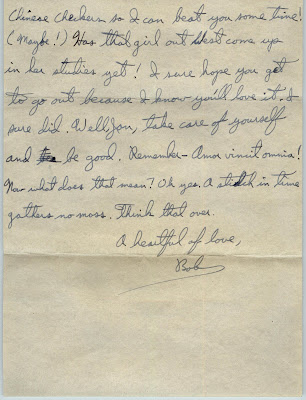 Chinese Checkers so I can beat you some time!
(Maybe!) Has that girl out West come up
in her studies yet? I sure hope you get
to go out because I know you'll love it. I
sure did. Well, Jon, take care of yourself
and be good. Remember - Amor vincit omnia!
Now what does that mean? Oh yes. A stitch in time
gathers no moss. Think that over.
A heartful of love,
Bob